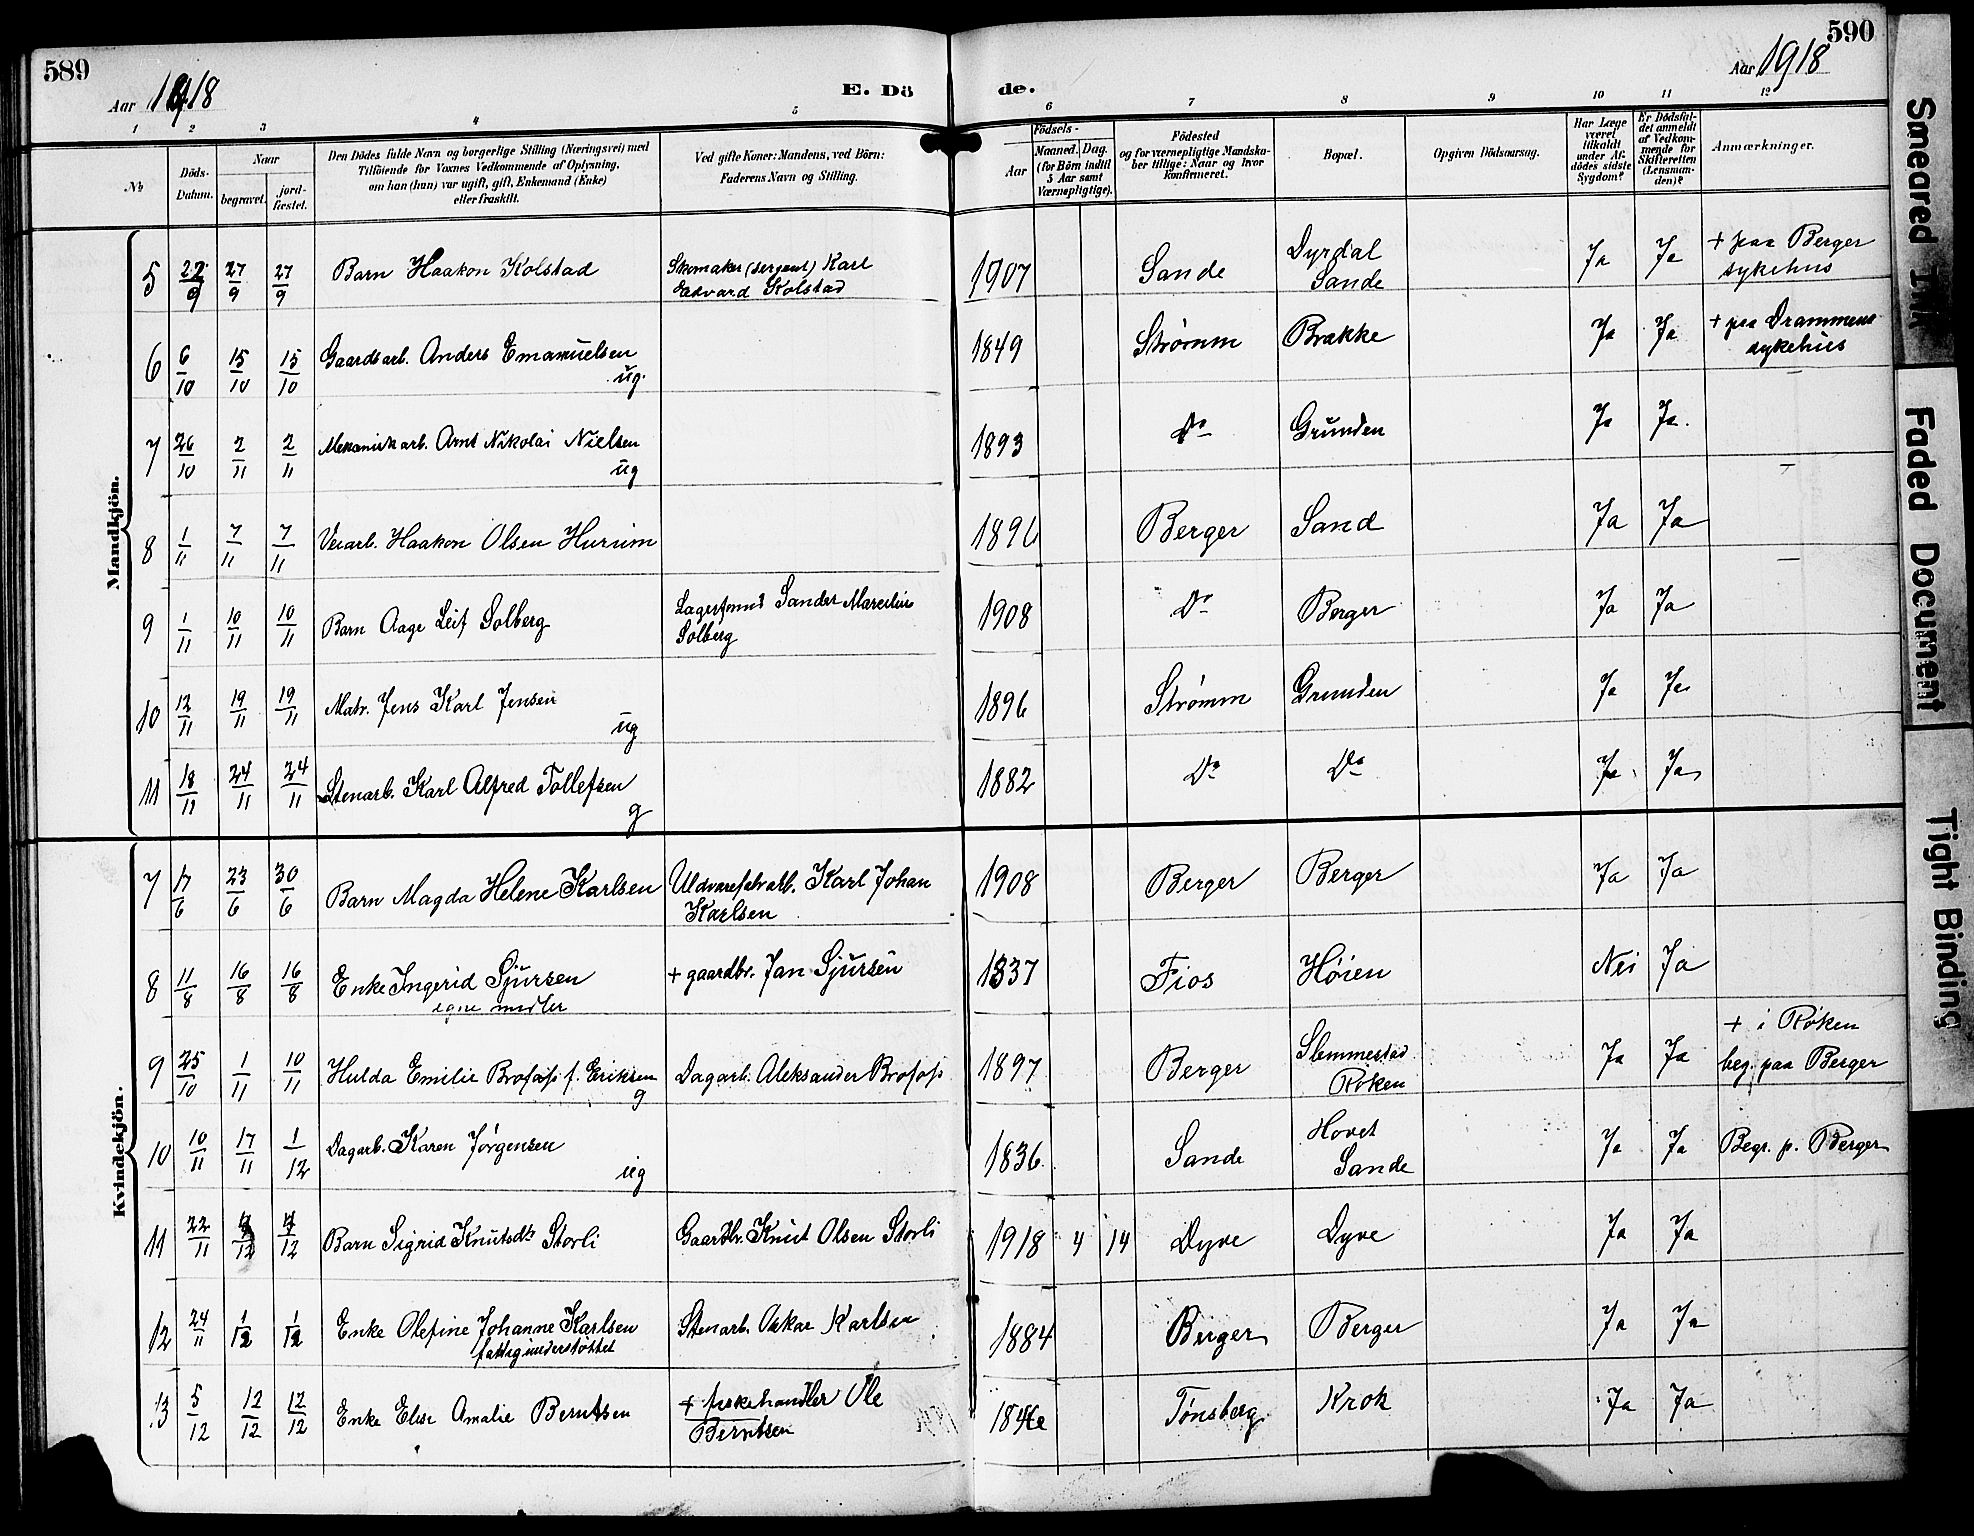 589
Aar 1918
E. Dö
de.
590
Aar 1918
1 2 3 4 5 6 7 8 9 10 11 12
No
Döds-Datum.
Naar
begravet.
jord-fæstet.
Den Dödes fulde Navn og borgerlige Stilling (Næringsvei) med
Tilföiende for Voxnes Vedkommende af Oplysning,
om han (hun) var ugift, gift, Enkemand (Enke)
eller fraskilt.
Ved gifte Koner: Mandens, ved Börn:
Faderens Navn og Stilling.
Födsels-
Aar
Maaned. Dag.
(for Börn indtil
5 Aar samt
Værnepligtige).
Födested
og for værnepligtige Mandska-
ber tillige: Naar og hvor
konfirmeret.
Bopæl.
Opgiven Dödsaarsag.
Har Læge
været
tilkaldt
under Af-
dödes sidste
Sygdom?
Er Dödsfal-
det anmeldt
af Vedkom-
mende for
Skifteretten
(Lensman-
den)?
Anmærkninger.
Mandkjön.
5 22/9 27/9 27/9 Barn Haakon Kolstad Skomaker (sergent) Karl Edvard Kolstad 1907 Sande Dyrdal Sande Ja Ja + paa Berger sykehus
6 6/10 15/10 15/10 Gaardsarb. Anders Emanuelsen ug. 1849 Strømm Brække Ja Ja + paa Drammens sykehus
7 26/10 2/11 2/11 Mekaniskarb. Arnt Nikolai Nielsen ug 1893 Do Grunden Ja Ja.
8 1/11 7/11 7/11 Veiarb. Haakon Olsen Hurum 1896 Berger Sand Ja Ja
9 1/11 10/11 10/11 Barn Aage Leif Solberg Lagerform Sander Marcelius Solberg 1908 Do Berger Ja Ja
10 12/11 19/11 19/11 Matr. Jens Karl Jensen ug 1896 Strømm Grunden Ja Ja
11 18/11 24/11 24/11 Stenarb. Karl Alfred Tollefsen g 1882 Do Do Ja Ja
Kvindekjön.
7 17/6 23/6 30/6 Barn Magda Helene Karlsen Uldvarefabrarb. Karl Johan Karlsen 1908 Berger Berger Ja Ja
8 11/8 16/8 16/8 Enke Ingerid Sjursen egne midler + gaardbr. Jan Sjursen 1837 Fios Høien Nei Ja
9 25/10 1/11 10/11 Hulda Emilie Brofoss f. Eriksen g Dagarb. Aleksander Brofoss 1897 Berger Slemmestad Røken Ja Ja + i Røken beg. paa Berger
10 10/11 17/11 1/12 Dagarb. Karen Jørgensen ug 1836 Sande Hovet Sande Ja Ja Begr. p. Berger
11 22/11 /12 /12 Barn Sigrid Knutsdtr Storli Gaardbr. Knut Olsen Storli 1918 4 14 Dyve Dyve Ja Ja
12 24/11 1/12 1/12 Enke Olefine Johanne Karlsen fattigunderstøttet Stenarb. Oskar Karlsen 1884 Berger Berger Ja Ja
13 5/12 12/12 12/12 Enke Elise Amalie Berntsen + fiskehandler Ole Berntsen 1846 Tønsberg Krok Ja Ja
Smeared Ink
Faded Document
Tight Binding